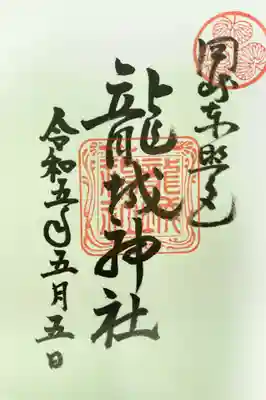 岡崎東照宮
龍城神社
令和五年五月五日